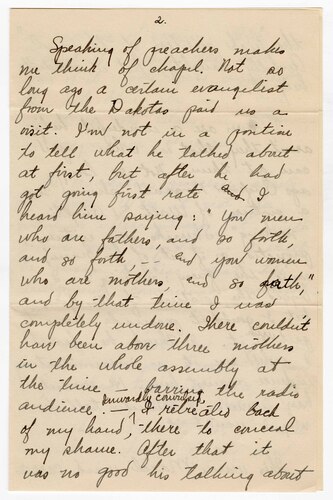 2.
Speaking of preachers makes
me think of chapel. Not so
long ago a certain evangelist
from the Dakotas paid us a
visit. I'm not in a position
to tell what he talked about
at first, but after he had
got going first rate and I
heard him saying: "You men
who are fathers, and so forth,
and so forth, -- and you women
who are mothers and so forth,"
and by that time I was
completely undone. There couldn't
have been above three mothers
in the whole assembly at
the time — barring the radio
audience. — I retreated back
inwardly convulsed,
of my hand, there to conceal
my shame. After that it
was no good his talking about